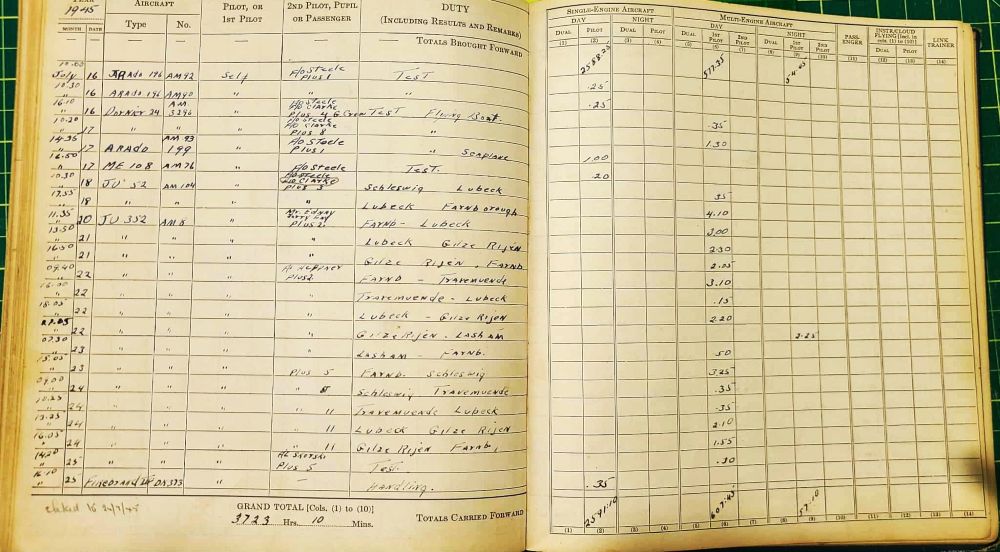 YEAR AIRCRAFT PILOT, OR 2ND PILOT, PUPIL DUTY
1945 Type No. 1ST PILOT OR PASSENGER (INCLUDING RESULTS AND REMARKS)
MONTH DATE — — — TOTALS BROUGHT FORWARD
SINGLE-ENGINE AIRCRAFT MULTI-ENGINE AIRCRAFT PASSENGER INSTR/CLOUD FLYING [Incl. in cols. (1) to (10)] LINK TRAINER
DAY NIGHT DAY NIGHT
DUAL PILOT DUAL PILOT DUAL 1ST PILOT 2ND PILOT DUAL 1ST PILOT 2ND PILOT DUAL PILOT
(1) (2) (3) (4) (5) (6) (7) (8) (9) (10) (11) (12) (13) (14)
2588.25 577.35 54.45
July 16 ARADO 196 AM92 Self F/O Steele Plus 1 Test .25
10.30
" 16 ARADO 196 AM90 " " " .25
16.10
" 16 Dornier 24 AM 3296 " F/O Steele P/O Clarke Plus 4 & Crew Test Flying Boat. .35
10.20
" 17 " " " F/O Steele P/O Clarke Plus 8 " 1.30
14.35
" 17 ARADO 199 AM 93 " F/O Steele Plus 1 " Seaplane 1.00
16.50
" 17 ME 108 AM76 " F/O Steele Test. .20
10.30
" 18 JU 52 AM104 " Plus 3 Schleswig Lubeck .35
17.55
" 18 " " " " Lubeck Farnborough 4.10
11.35
" 20 JU 352 AM8 " Plus 2. Farnb - Lubeck 3.00
13.50
" 21 " " " " Lubeck Gilze Rijen 2.30
16.50
" 21 " " " " Gilze Rijen . Farnb 2.05
09.40
" 22 " " " Plus 2 Farnb - Travemuende 3.10
16.00
" 22 " " " " Travemuende - Lubeck .15
18.05
" 22 " " " " Lubeck - Gilze Rijen 2.20
" 22 " " " " Gilze Rijen . Lasham 2.25
07.30
" 23 " " " " Lasham - Farnb. .50
15.05
" 23 " " " Plus 5 Farnb. Schleswig 3.25
09.00
" 24 " " " " 8 Schleswig Travemuende .35
10.25
" 24 " " " " 11 Travemuende Lubeck .35
13.25
" 24 " " " " 11 Lubeck Gilze Rijen 2.10
16.05
" 24 " " " " 11 Gilze Rijen Farnb. 1.55
" 25 " " " Plus 5 Test. .30
16.10
" 25 Firebrand DK373 " — Handling. .35
GRAND TOTAL [Cols. (1) to (10)]
3723 Hrs. 10 Mins.
TOTALS CARRIED FORWARD 2591.10 607.45 57.10
(1) (2) (3) (4) (5) (6) (7) (8) (9) (10) (11) (12) (13) (14)